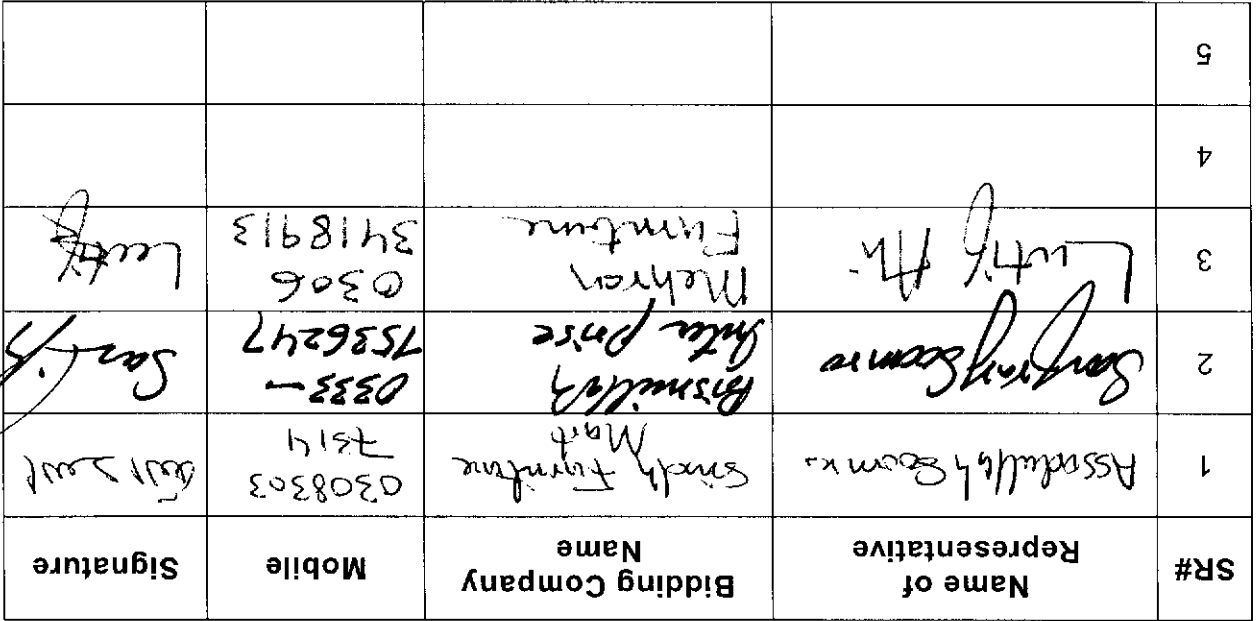 SR#
Name of
Representative
Bidding Company
Name
Mobile
Signature
1
Assadullah Soomro
Sindh Furniture
Mart
0308303
7514
2
Sarfraz Soomro
Bismillah
Enterprise
0333-
7536247
3
Lutif Ali
Mehran
Furniture
0306
3418913
4
5